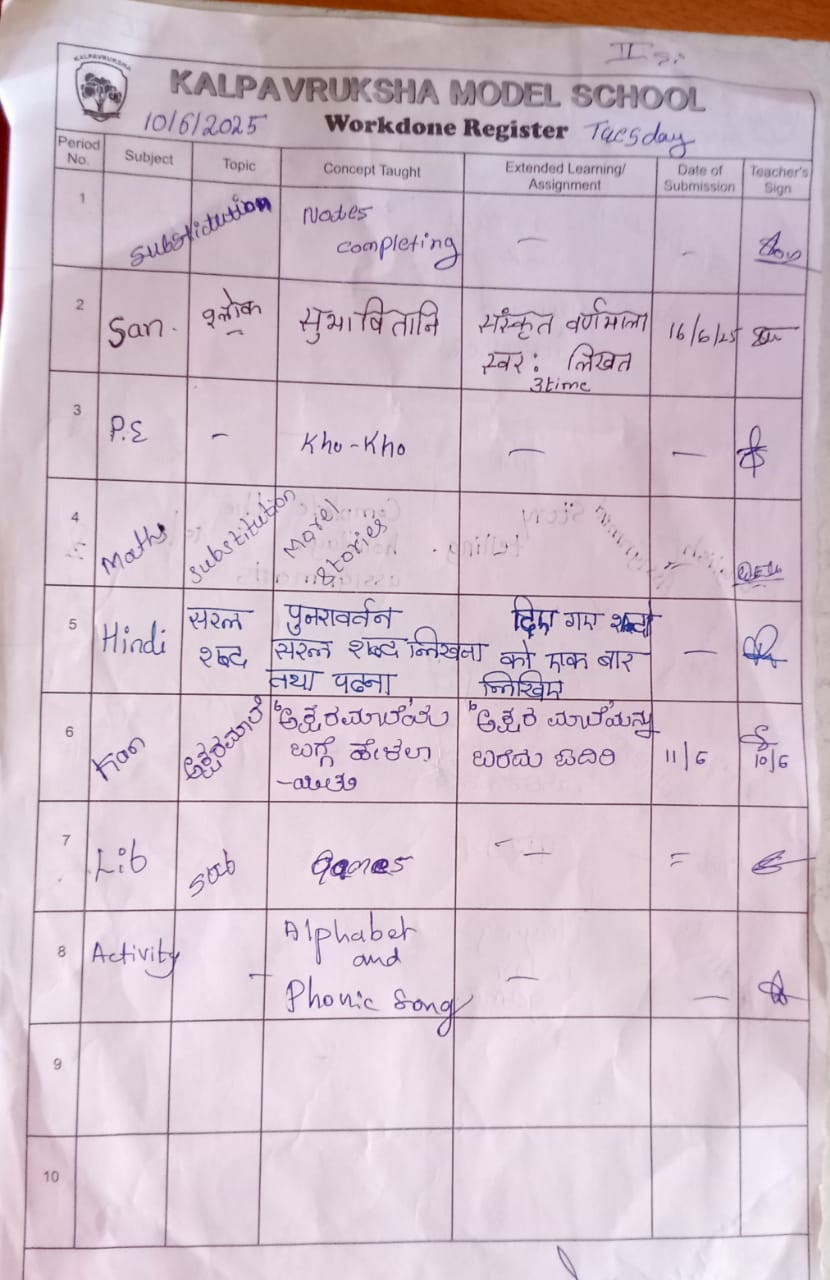 KALPAVRUKSHA
KALPAVRUKSHA MODEL SCHOOL
10/6/2025 Workdone Register Tuesday
Period No. Subject Topic Concept Taught Extended Learning/ Assignment Date of Submission Teacher's Sign
1 Substidution Nodes completing – –
2 San. श्लोक सुभाषितानि संस्कृत वर्णमाला स्वर: लिखत 3time 16/6/25
3 P.E – Kho-Kho – –
4 Maths Substitution Morel Stories
5 Hindi सरल शब्द पुनरावर्तन सरल शब्द लिखना तथा पढना दिए गए शब्दो को एक बार लिखिए –
6 Kan ಅಕ್ಷರಮಾಲೆ ಅಕ್ಷರಮಾಲೆಯ ಬಗ್ಗೆ ಹೇಳಲಾ -ಯಿತು ಅಕ್ಷರ ಮಾಲೆಯನ್ನು ಬರೆದು ಓದಿರಿ 11/6 10/6
7 Lib Sub Games – =
8 Activity – Alphabet and Phonic Song – –
9
10